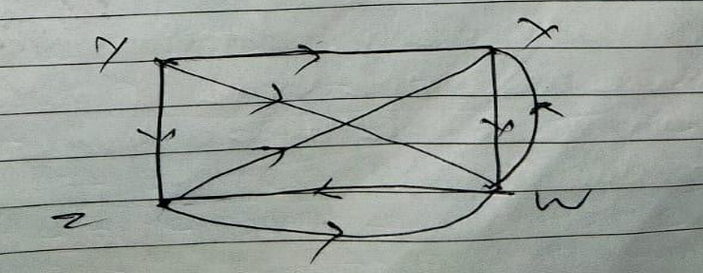 Y X
Z W